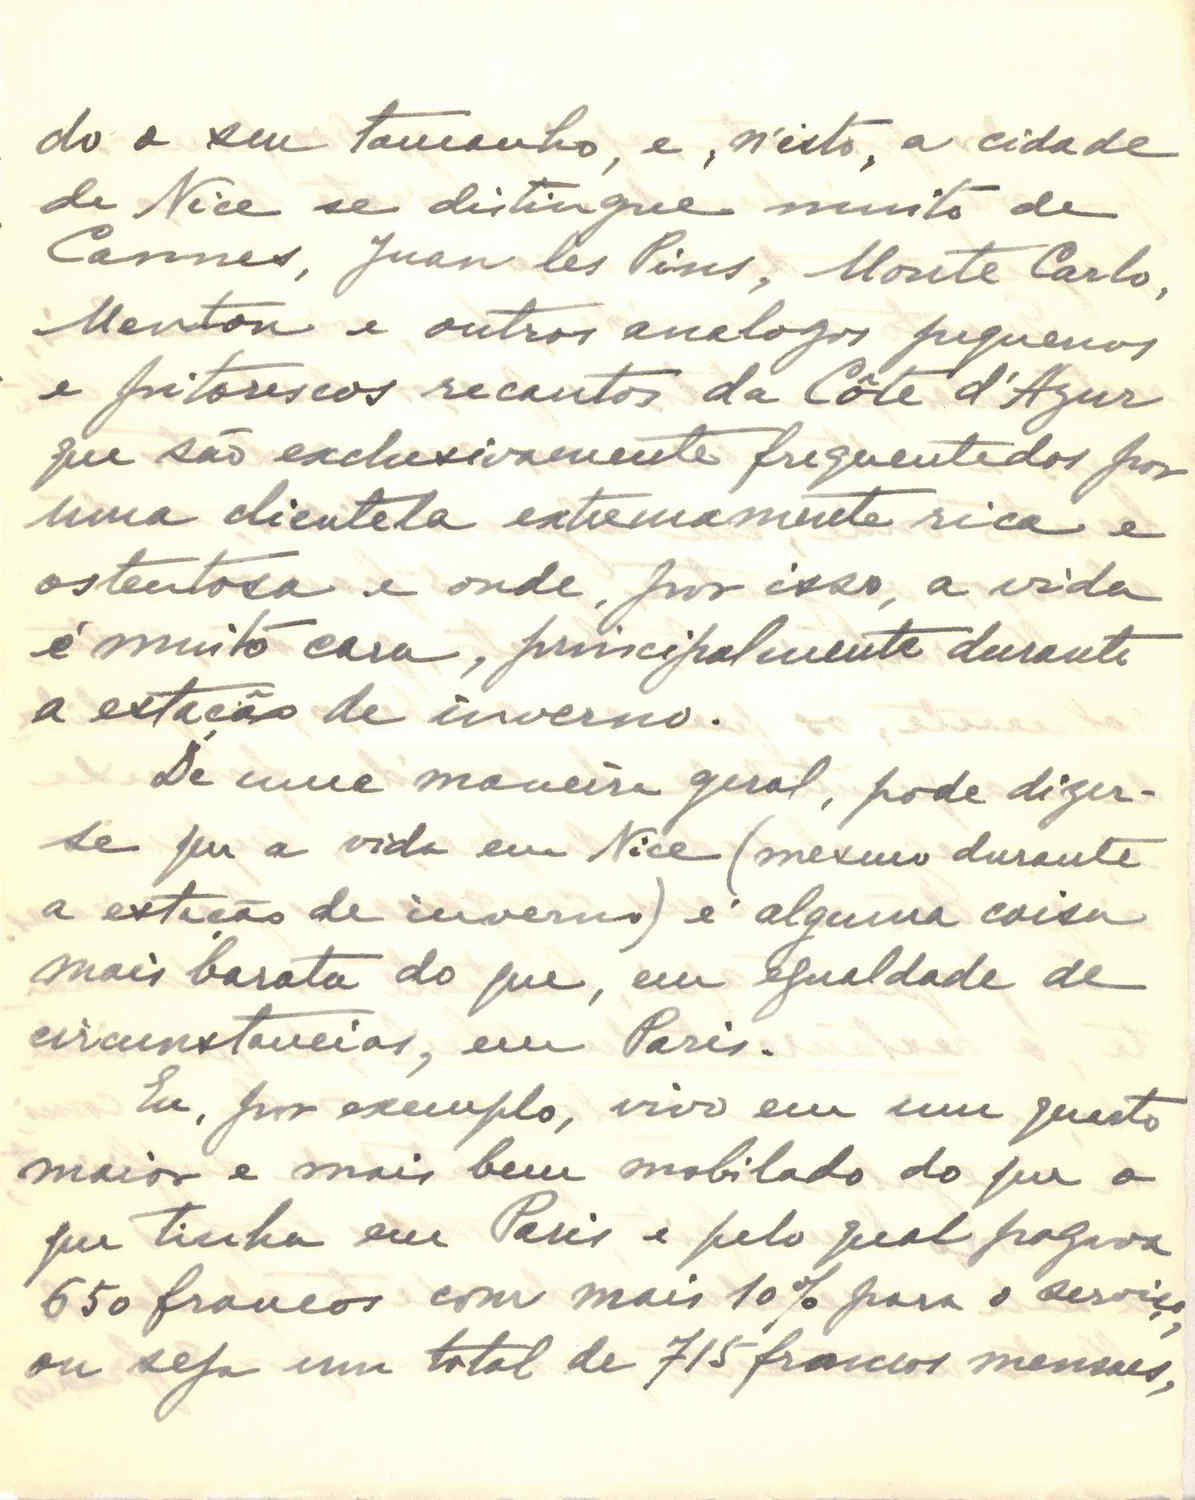 do o seu tamanho, e, n'isto, a cidade
de Nice se distingue muito de
Cannes, Juan les Pins, Monte Carlo,
Menton e outros analogos pequenos
e pitorescos recantos da Côte d'Azur
que são exclusivamente frequentados por
uma clientela extremamente rica e
ostentosa e onde, por isso, a vida
é muito cara, principalmente durante
a estação de inverno.
De uma maneira geral, pode dizer-
se que a vida em Nice (mesmo durante
a estação de inverno) é alguma coisa
mais barata do que, em egualdade de
circunstancias, em Paris.
Eu, por exemplo, vivo em um quarto
maior e mais bem mobilado do que o
que tinha em Paris e pelo qual pagava
650 francos com mais 10% para o serviço,
ou seja um total de 715 francos mensaes,